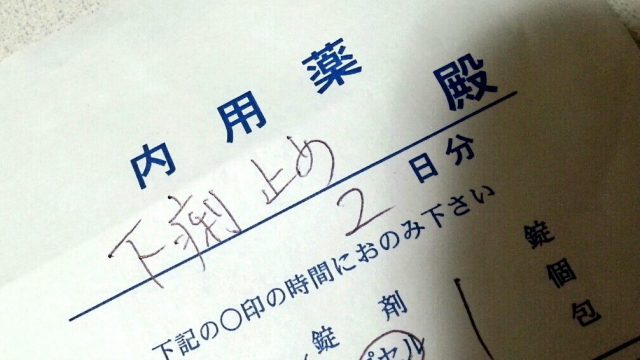 内用薬
殿
下痢止め
2日分
下記の○印の時間におのみ下さい
錠剤
錠
個
包